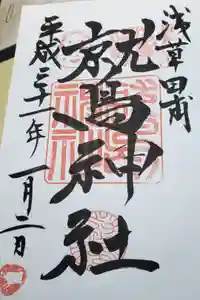 浅草田甫
鷲神社
平成三十一年
一月二日